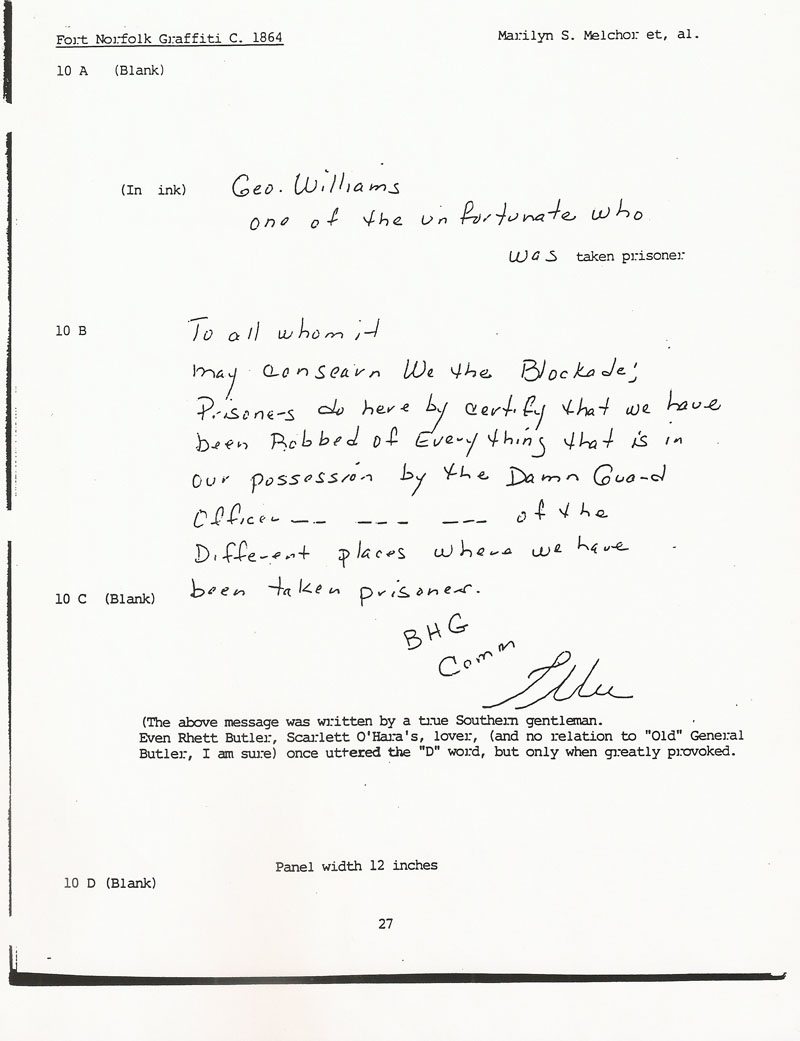 Fort Norfolk Graffiti C. 1864
Marilyn S. Melchor et, al.
10 A (Blank)
(In ink) Geo. Williams
one of the unfortunate who
was taken prisoner
10 B
To all whom it
may consearn We the Blockade;
Prisoners do here by certify that we have
been Robbed of Every thing that is in
our possession by the Damn Guard
Officer __ ___ ___ of the
Different places where we have
been taken prisoner.
10 C (Blank)
BHG
Comm
(The above message was written by a true Southern gentleman.
Even Rhett Butler, Scarlett O'Hara's, lover, (and no relation to "Old" General
Butler, I am sure) once uttered the "D" word, but only when greatly provoked.
Panel width 12 inches
10 D (Blank)
27